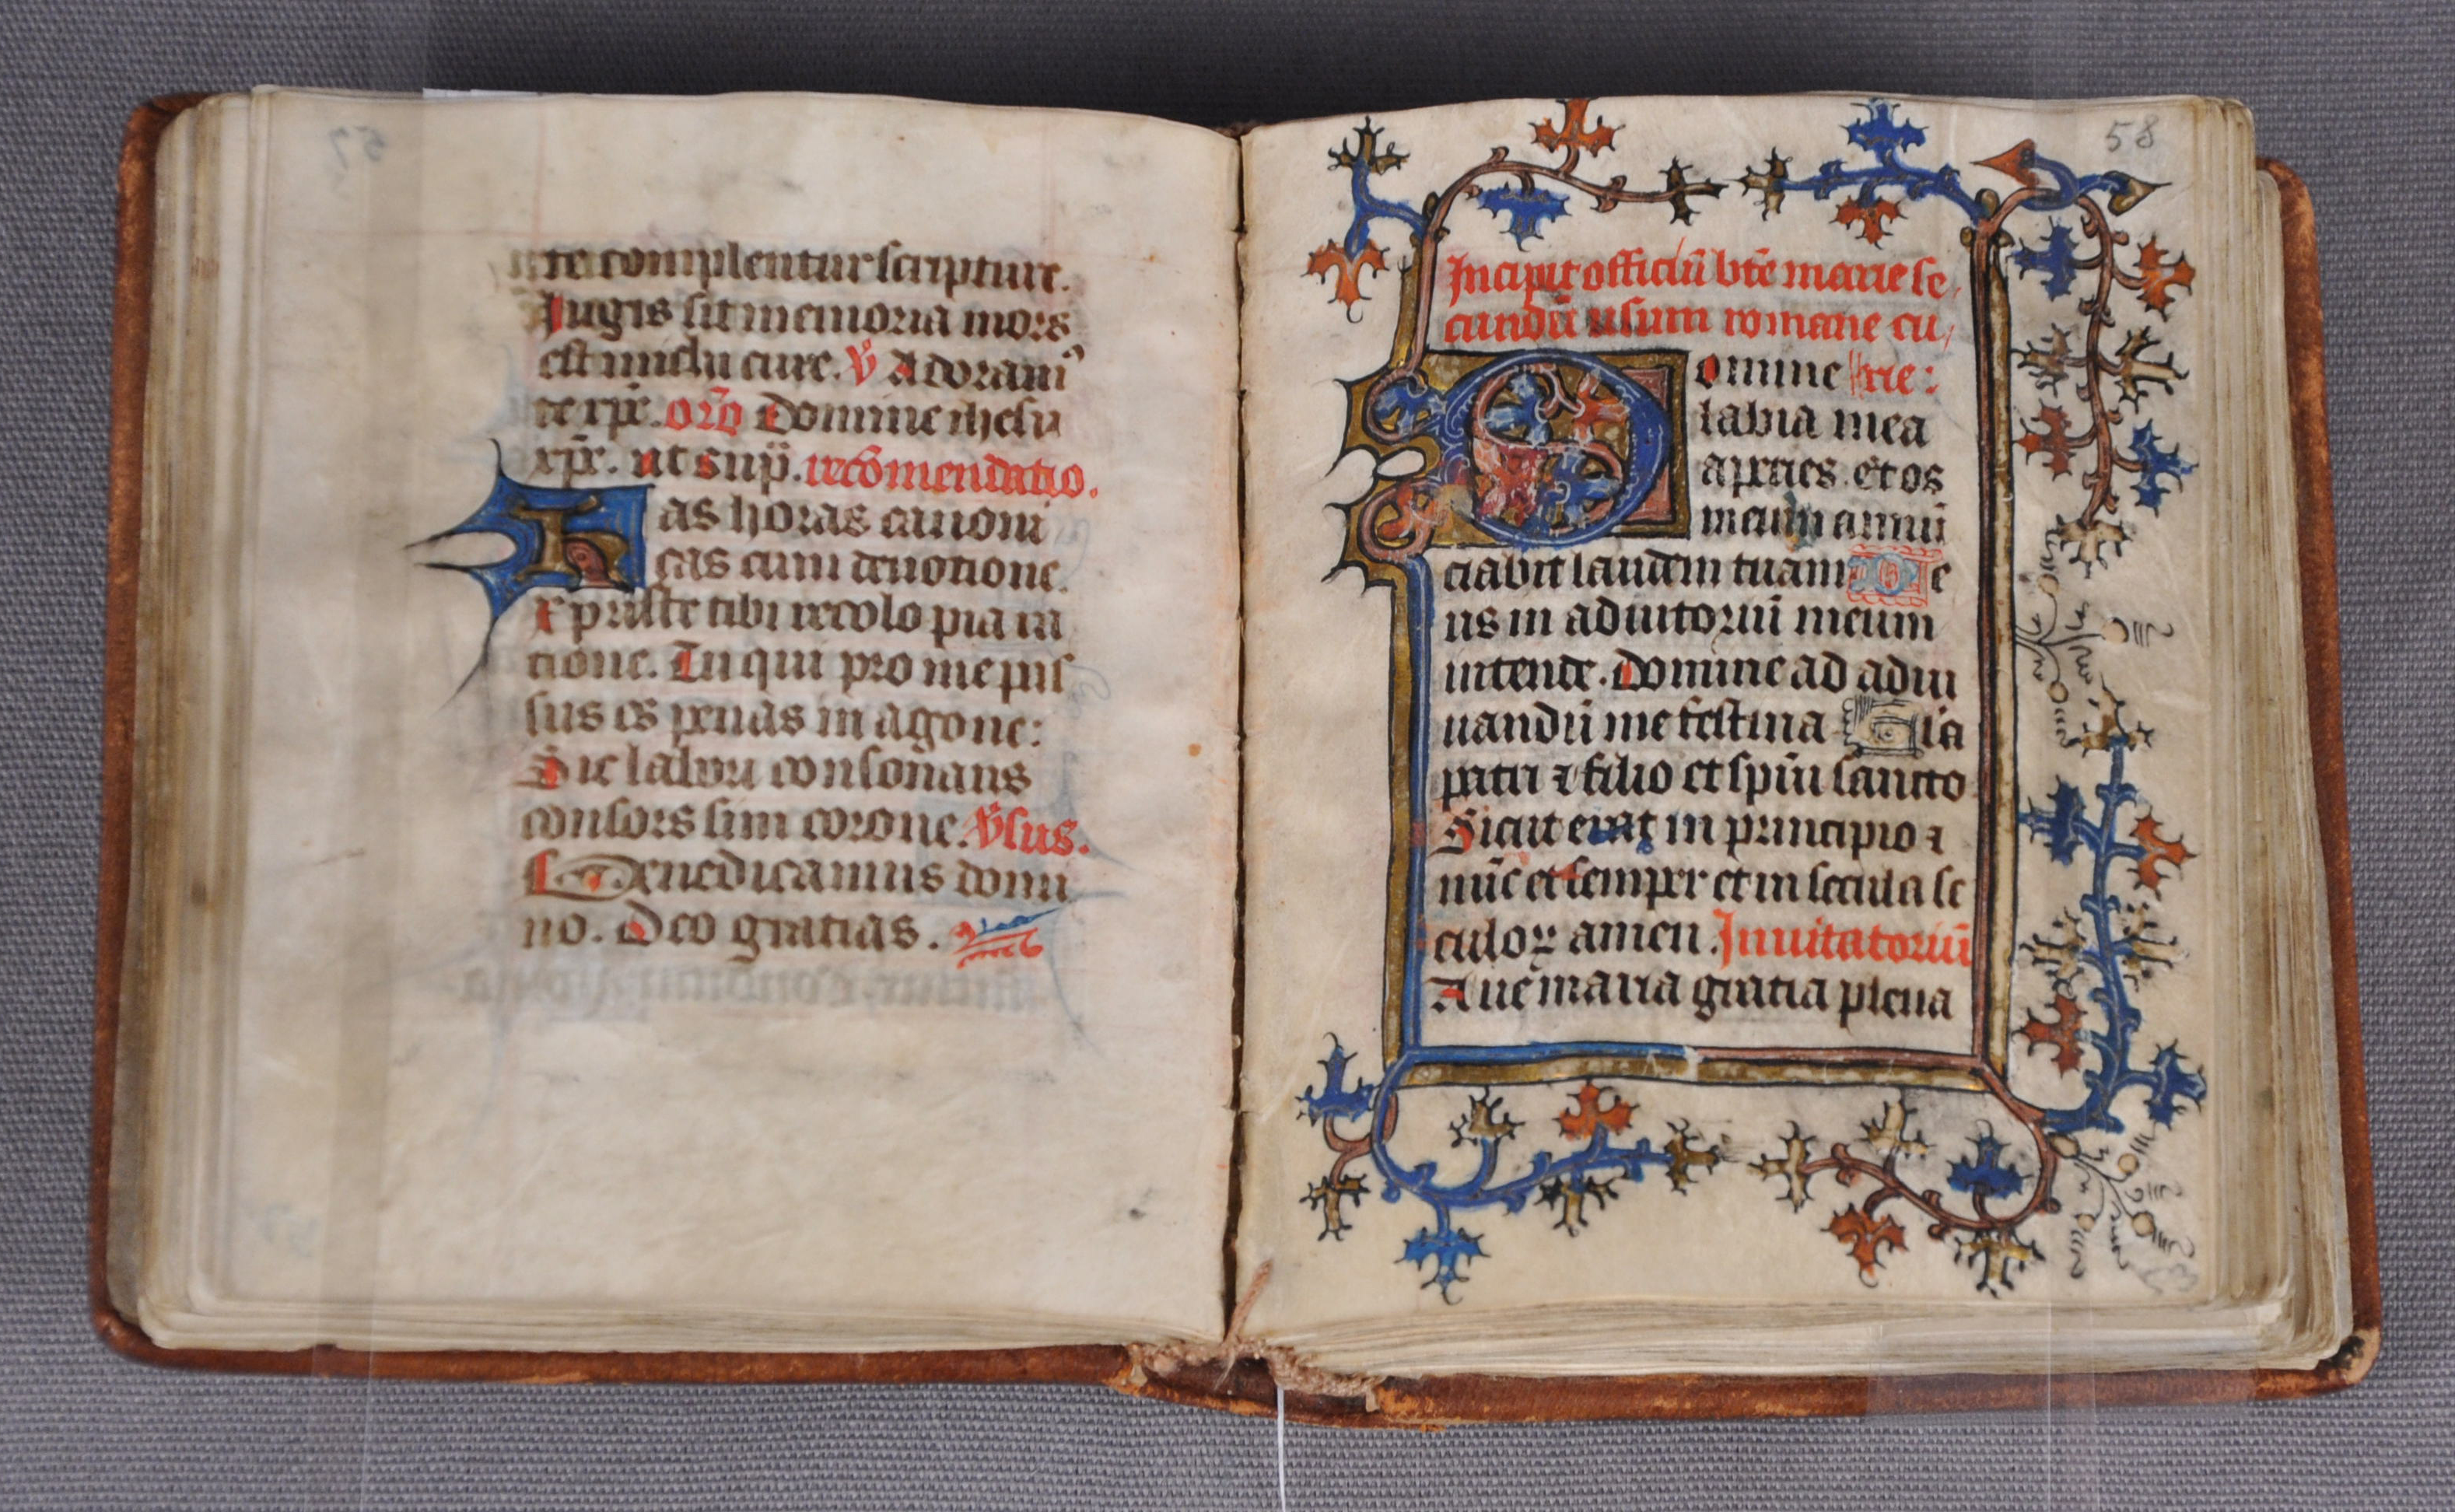 te complentur scripture.
Iugis sit memoria mors
est michi cure. ỽ Adoramꝰ
te xp̄e. orō Domine ihesu
xp̄e. ut sup̄. recōmendatio.
has horas canoni
cas cum deuotione.
xpriste tibi recolo pia ra
cione. Tu qui pro me pas
sus es penas in agone:
Sic labori consonans
consors sim corone. v̊sus.
Benedicamus domi
no. Deo gratias.
58
Incipit officiū bt̄e marie se
cundū usum romane cu
Domine rie:
labia mea
aperies et os
meum annū
ciabit laudem tuam De
us in adiutoriū meum
intende. Domine ad adiu
uandū me festina Gl'a
patri ⁊ filio et spūi sancto
Sicut erat in principio ⁊
nūc et semper et in secula se
culoꝝ amen. Inuitatoriū
Aue maria gratia plena